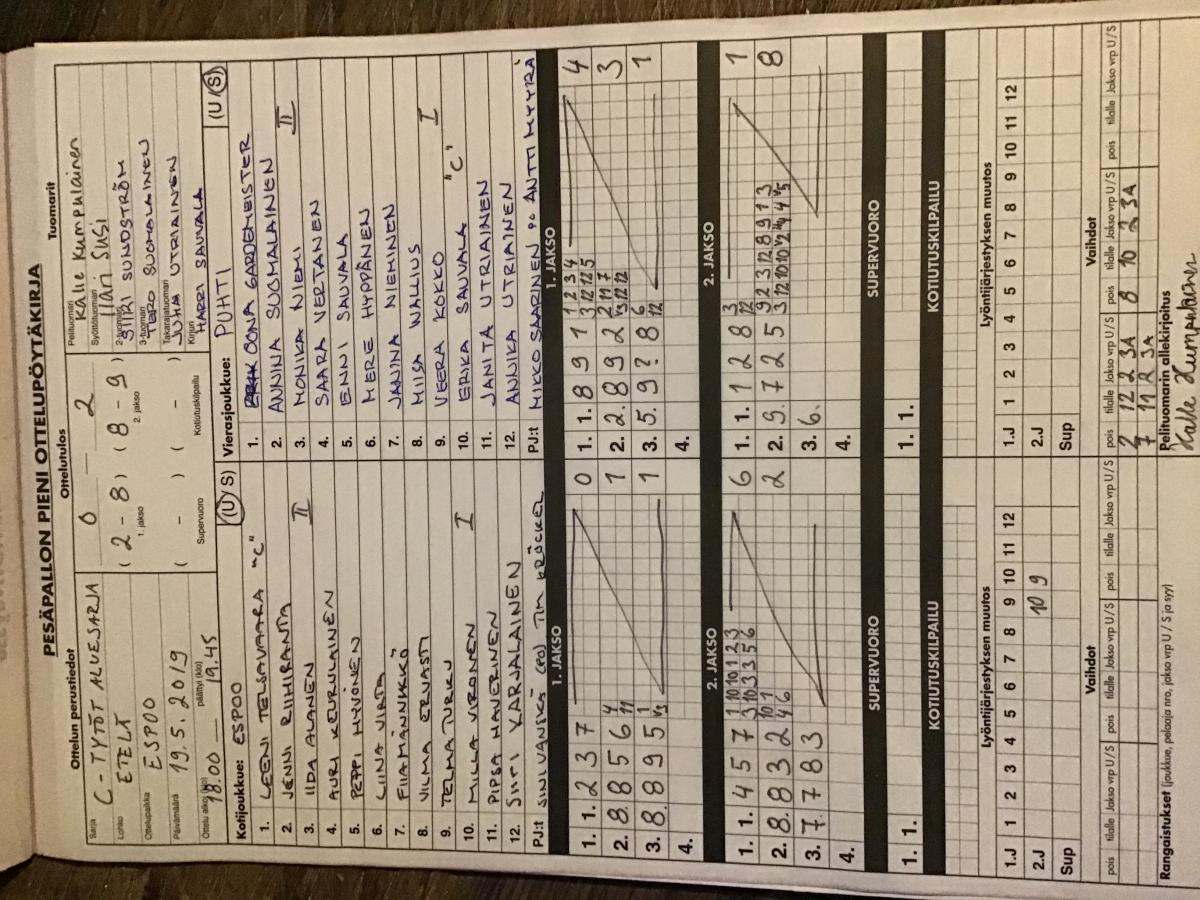 PESÄPALLON PIENI OTTELUPÖYTÄKIRJA
Ottelun perustiedot
Sarja C-TYTÖT ALUESARJA
Lohko ETELÄ
Ottelupaikka ESPOO
Päivämäärä 19.5.2019
Ottelu alkoi (klo) 18.00 päättyi (klo) 19.45
Ottelutulos
0 2
( 2 - 8 ) ( 8 - 9 )
1. jakso 2. jakso
( - ) ( - )
Supervuoro Kotiutuskilpailu
Tuomarit
Pelituomari Kalle Kumpulainen
Syöttötuomari Ilari Susi
2-tuomari SIIRI SUNDSTRÖM
3-tuomari TERO SUOMALAINEN
Takarajatuomari JUHA UTRIAINEN
Kirjuri HARRI SAUVALA
Kotijoukkue: ESPOO (U/S)
1. LEENI TELSAVAARA "C"
2. JENNI RIIHIRANTA
3. IIDA ALANEN II
4. AURI KEURULAINEN
5. PEPPI HYVÖNEN
6. LIINA VIRTA
7. FIIA MÄNNIKKÖ
8. VILMA ERVASTI
9. TELMA TURKU
10. MILLA VIRONEN I
11. PIPSA HAVERINEN
12. SIIRI KARJALAINEN
PJ:t SINI VÄNSKÄ (PO) TIM KRÖCKEL
Vierasjoukkue: PUHTI (U/S)
1. OONA GARDEMEISTER
2. ANNINA SUOMALAINEN
3. MONIKA NIEMI II
4. SAARA VERTANEN
5. ENNI SAUVALA
6. MERE HYPPÄNEN
7. JANINA NIEMINEN
8. MIISA WALLIUS
9. VEERA KOKKO
10. ERIKA SAUVALA "C" I
11. JANITA UTRIAINEN
12. ANNIKA UTRIAINEN
PJ:t MIKKO SAARINEN PO ANTTI MYYRÄ
1. JAKSO
1. 1. 2 3 7 0
2. 8. 8 5 6 4 11 1
3. 8. 8 9 5 1 V3 1
4.
1. JAKSO
1. 1. 8 9 1 1 2 3 4 3 12 12 5 4
2. 2. 8 9 2 2 11 7 V3 12 12 3
3. 5. 9 ? 8 6 12 1
4.
2. JAKSO
1. 1. 4 5 7 1 10 10 1 2 3 3 10 3 3 5 6 6
2. 8. 8 3 2 10 1 4 6 2
3. 7. 7 8 3
4.
2. JAKSO
1. 1. 1 2 8 3 12 1
2. 9. 7 2 5 9 2 3 12 8 9 1 3 3 12 10 10 V2 V4 4 V5 8
3. 6.
4.
SUPERVUORO
1. 1.
SUPERVUORO
1. 1.
KOTIUTUSKILPAILU
KOTIUTUSKILPAILU
Lyöntijärjestyksen muutos
1.J 1 2 3 4 5 6 7 8 9 10 11 12
2.J 10 9
Sup
Lyöntijärjestyksen muutos
1.J 1 2 3 4 5 6 7 8 9 10 11 12
2.J
Sup
Vaihdot
pois tilalle Jakso vrp U/S pois tilalle Jakso vrp U/S pois tilalle Jakso vrp U/S
Vaihdot
pois tilalle Jakso vrp U/S pois tilalle Jakso vrp U/S pois tilalle Jakso vrp U/S
2 12 2 3A 8 10 2 3A
7 11 2 3A
Rangaistukset (joukkue, pelaaja nro, jakso U / S ja syy)
Pelituomarin allekirjoitus
Kalle Kumpulainen